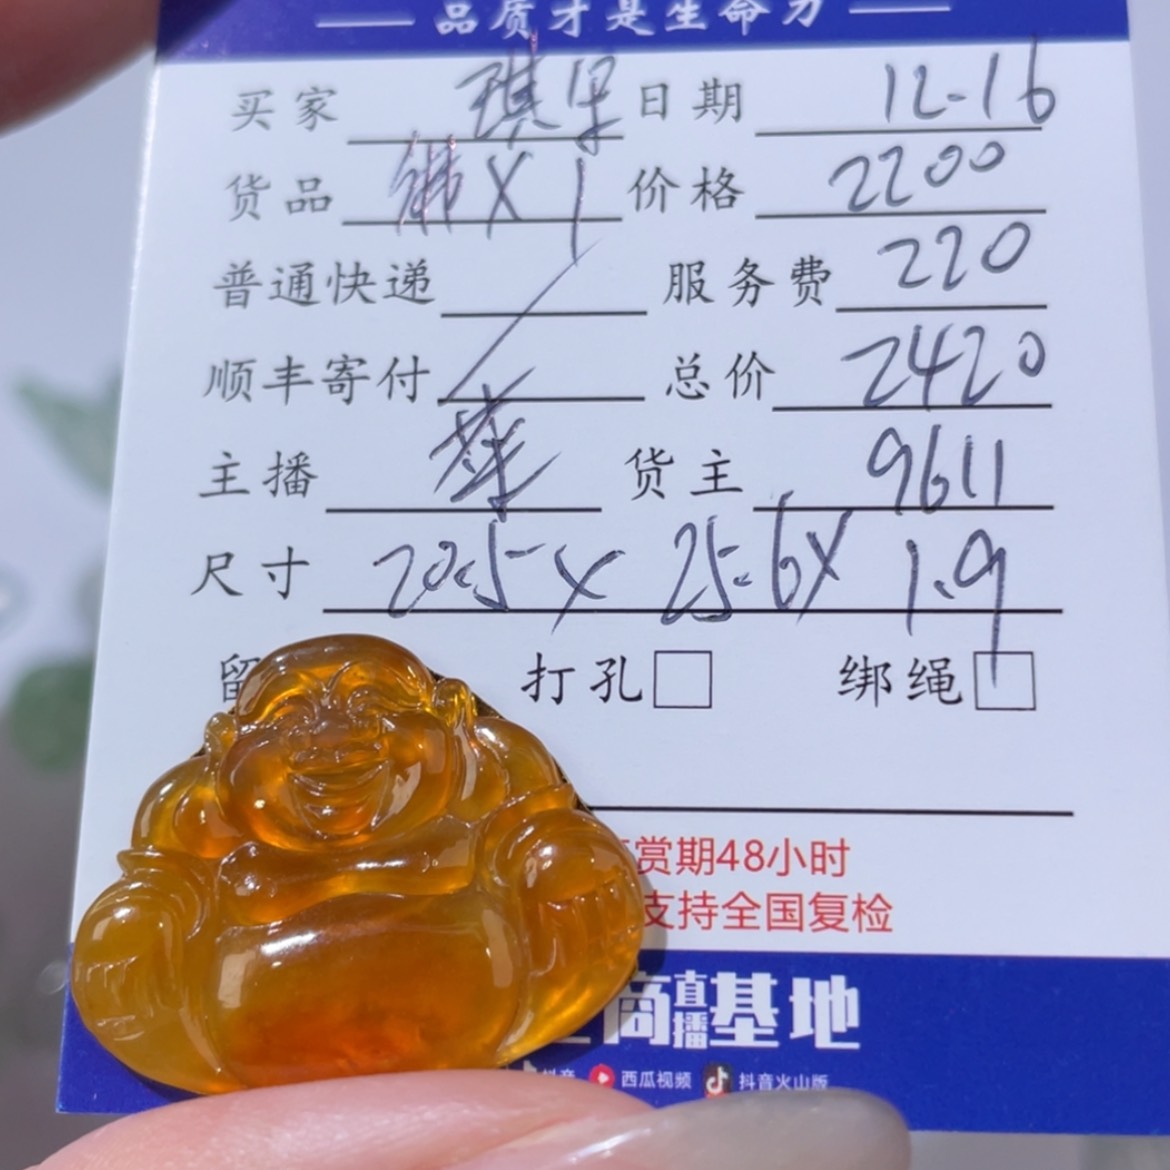 品质才是生命力
买家 琪果 日期 12-16
货品 佛X1 价格 2200
普通快递 服务费 220
顺丰寄付 总价 2420
主播 货主 9611
尺寸 20.5X 25.6X 1.9
留 打孔 绑绳
赏期48小时
支持全国复检
商直播基地
抖音 西瓜视频 抖音火山版